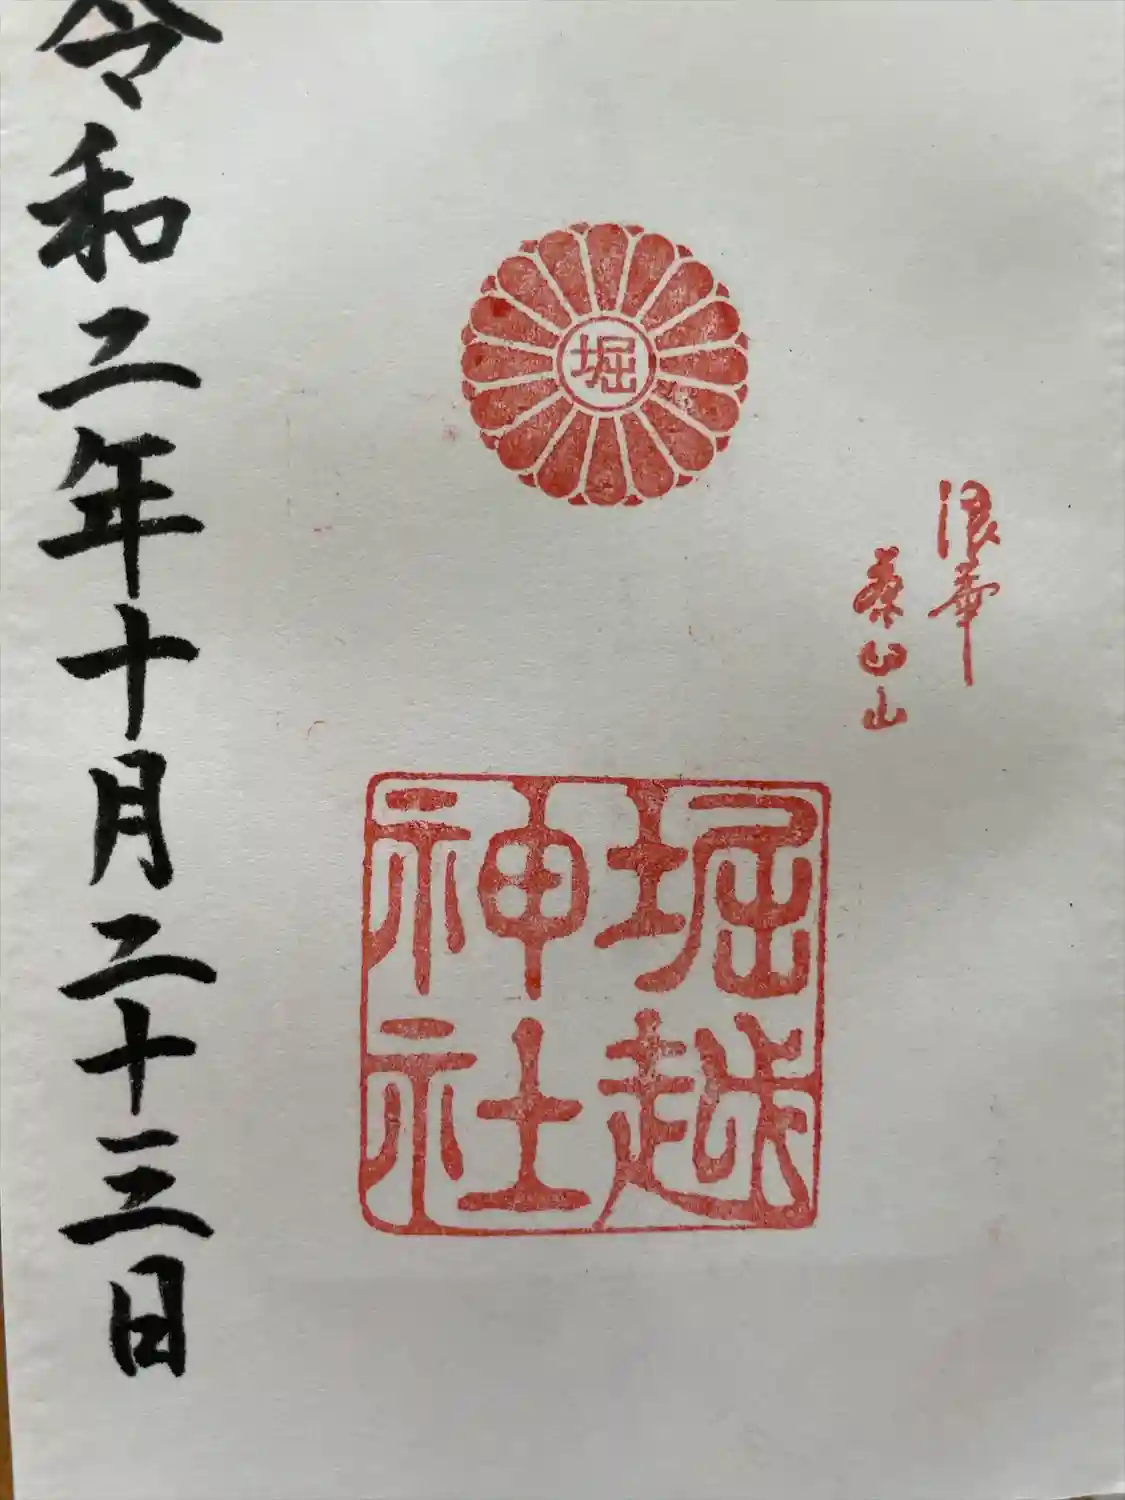 浪華
蔡山
堀
堀越
神社
令和二年十月二十三日